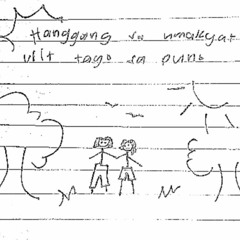 Hanggang sa umakyat
ulit tago sa puno